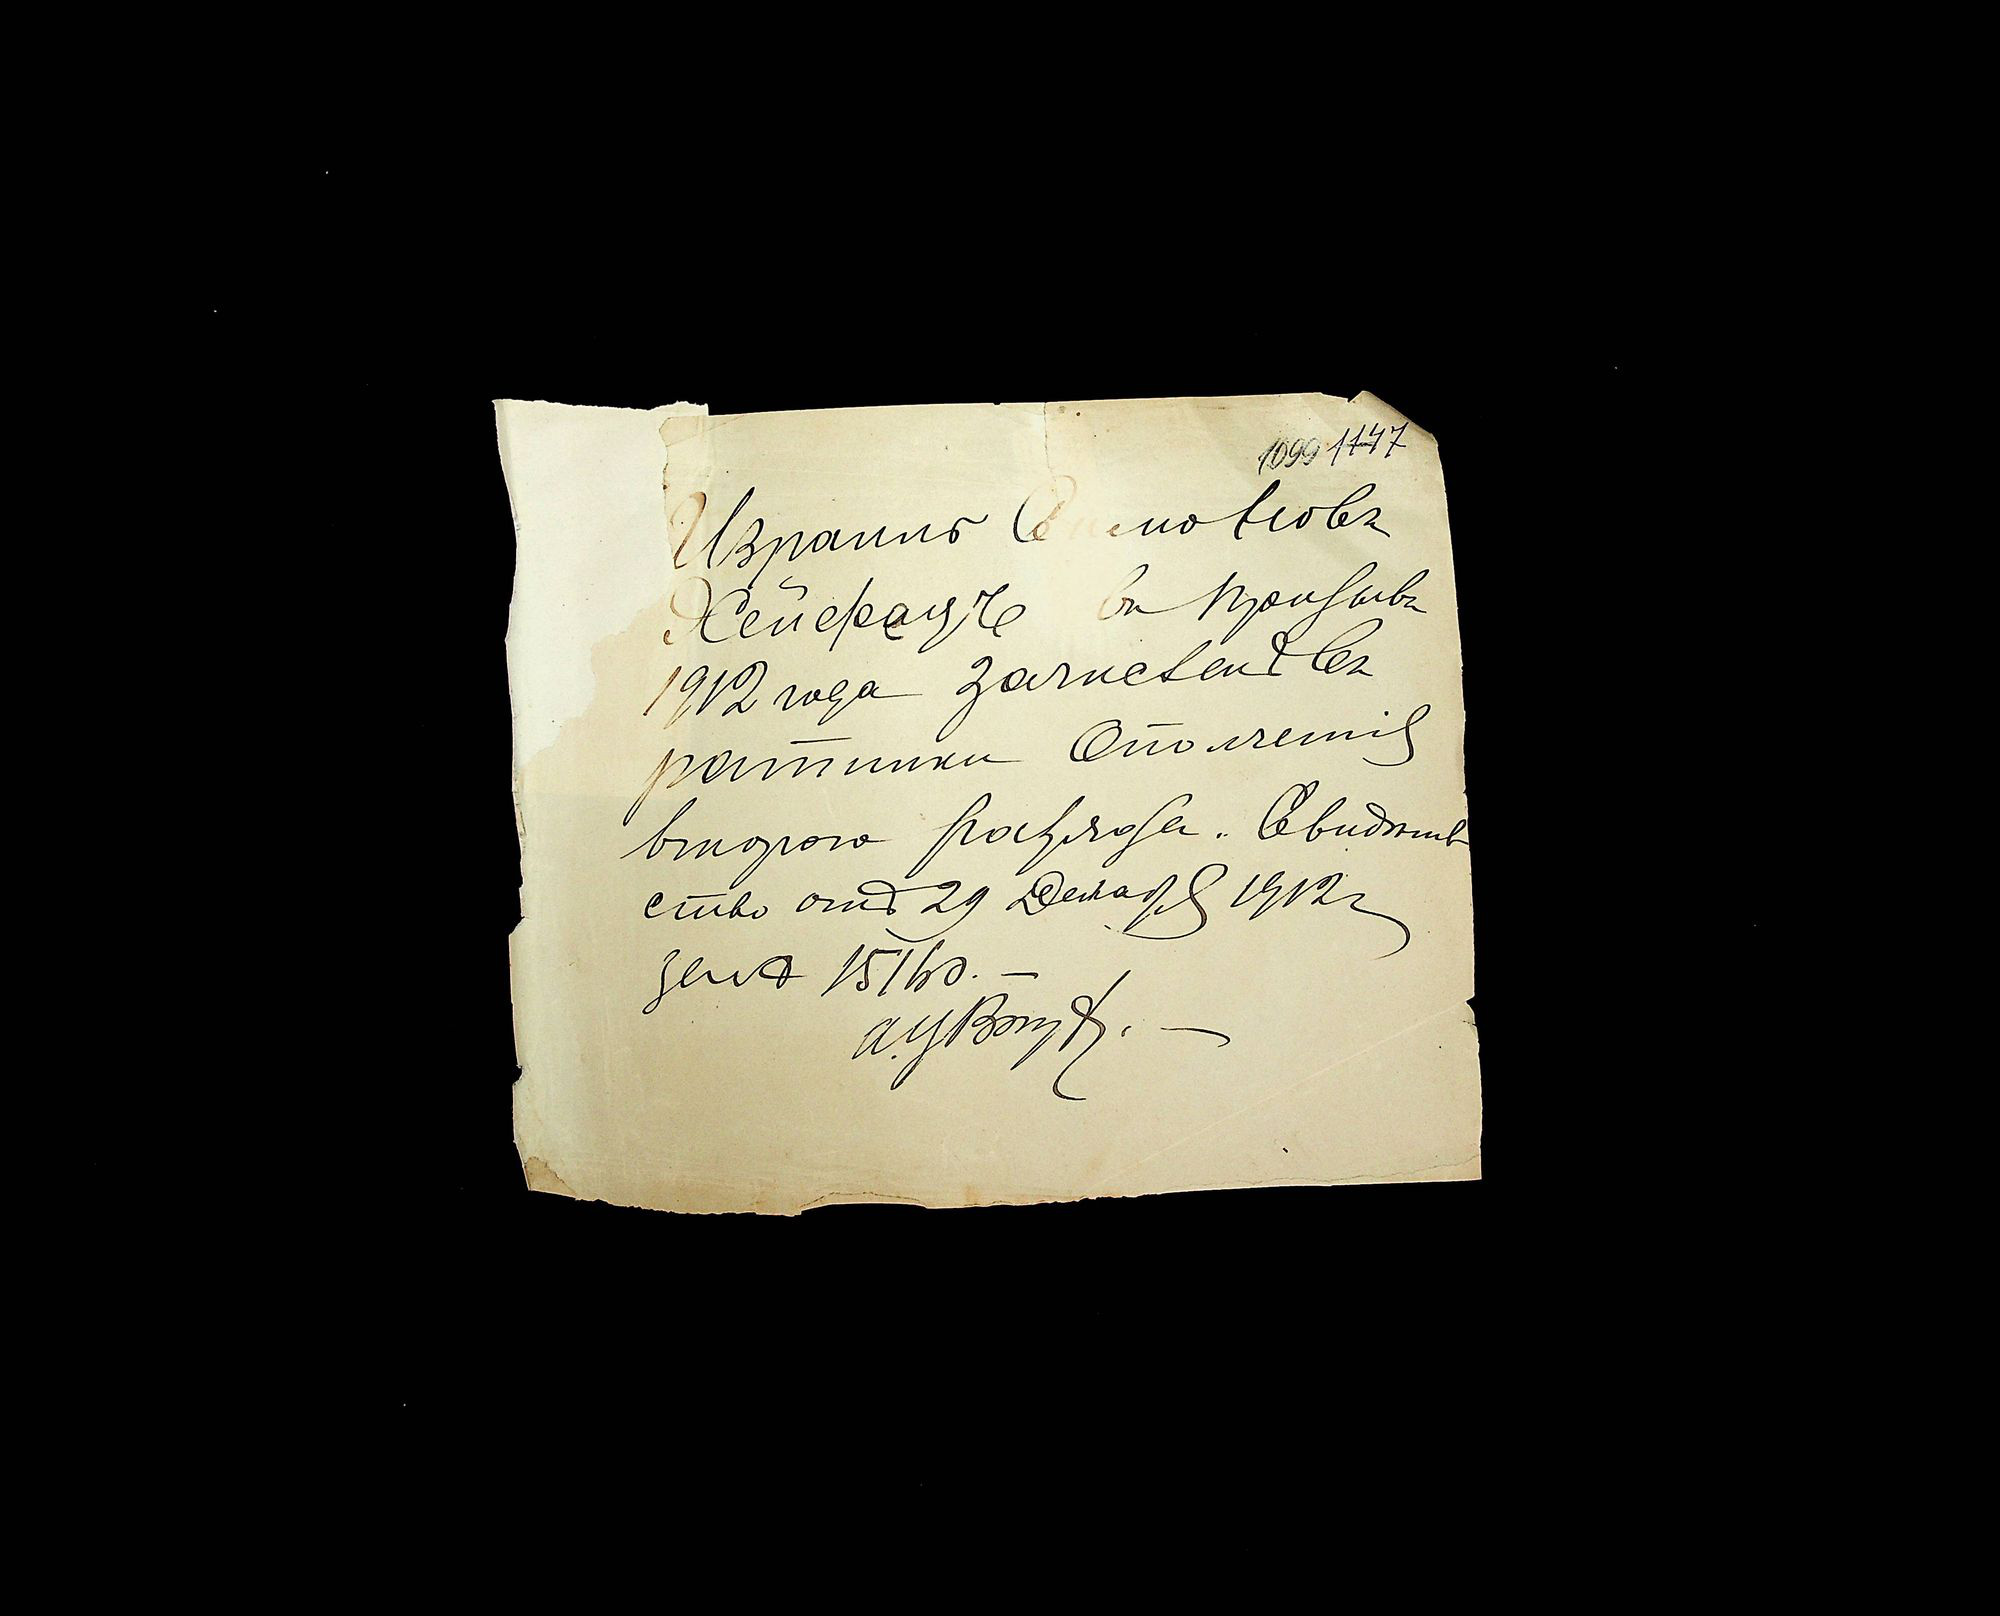 1099 1147
Израиль
Хейфецъ въ призывъ
1912 года зачисленъ въ
ратники Ополченія
второго разряда. Свидѣтель
ство отъ 29 Декабря 1912 г
за №